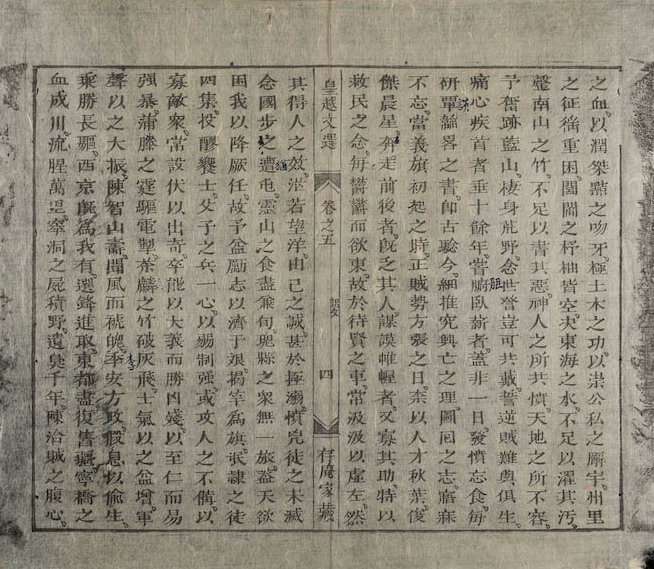 之血。以潤桀黠之吻牙。極土木之功。以崇公私之廨宇。州里
之征徭重困。閭閻之杼柚皆空。夫東海之水。不足以濯其污。
罄南山之竹。不足以書其惡。神人之所共憤。天地之所不容。
予奮跡藍山。棲身荒野。念世讐豈可共戴。誓逆賊難與俱生。
痛心疾首者垂十餘年。嘗胆臥薪者蓋非一日。發憤忘食。每
研覃韜畧之書。卽古驗今。細推究興亡之理。圖回之志。寤寐
不忘。當義旗初起之時。正賊勢方張之日。柰以人才秋葉。俊
傑晨星。奔走前後者。旣乏其人。謀謨帷幄者。又寡其助。特以
救民之念。每鬱鬱而欲東。故於待賢之車。常汲汲以虛左。然
皇越文選 卷之五 詔文 四 存庵家藏
其得人之效。茫若望洋。由己之誠。甚於拯溺。憤兇徒之未滅
念國步之遭屯。靈山之食盡兼旬。瑰縣之衆無一旅。蓋天欲
困我以降厥任。故予益勵志以濟于艱。揭竿爲旗。氓隸之徒
四集。投醪饗士。父子之兵一心。以弱制强。或攻人之不備。以
寡敵衆。常設伏以出奇。卒能以大義而勝凶殘。以至仁而易
强暴。蒲藤之霆驅電掣。茶麟之竹破灰飛。士氣以之益增。軍
聲以之大振。陳智山壽。聞風而褫魄。李安方政。假息以偷生。
乘勝長驅。西京旣爲我有。選鋒進取。東都盡復舊疆。寧橋之
血成川。流腥萬里。窣洞之屍積野。遺臭千年。陳洽賊之腹心。